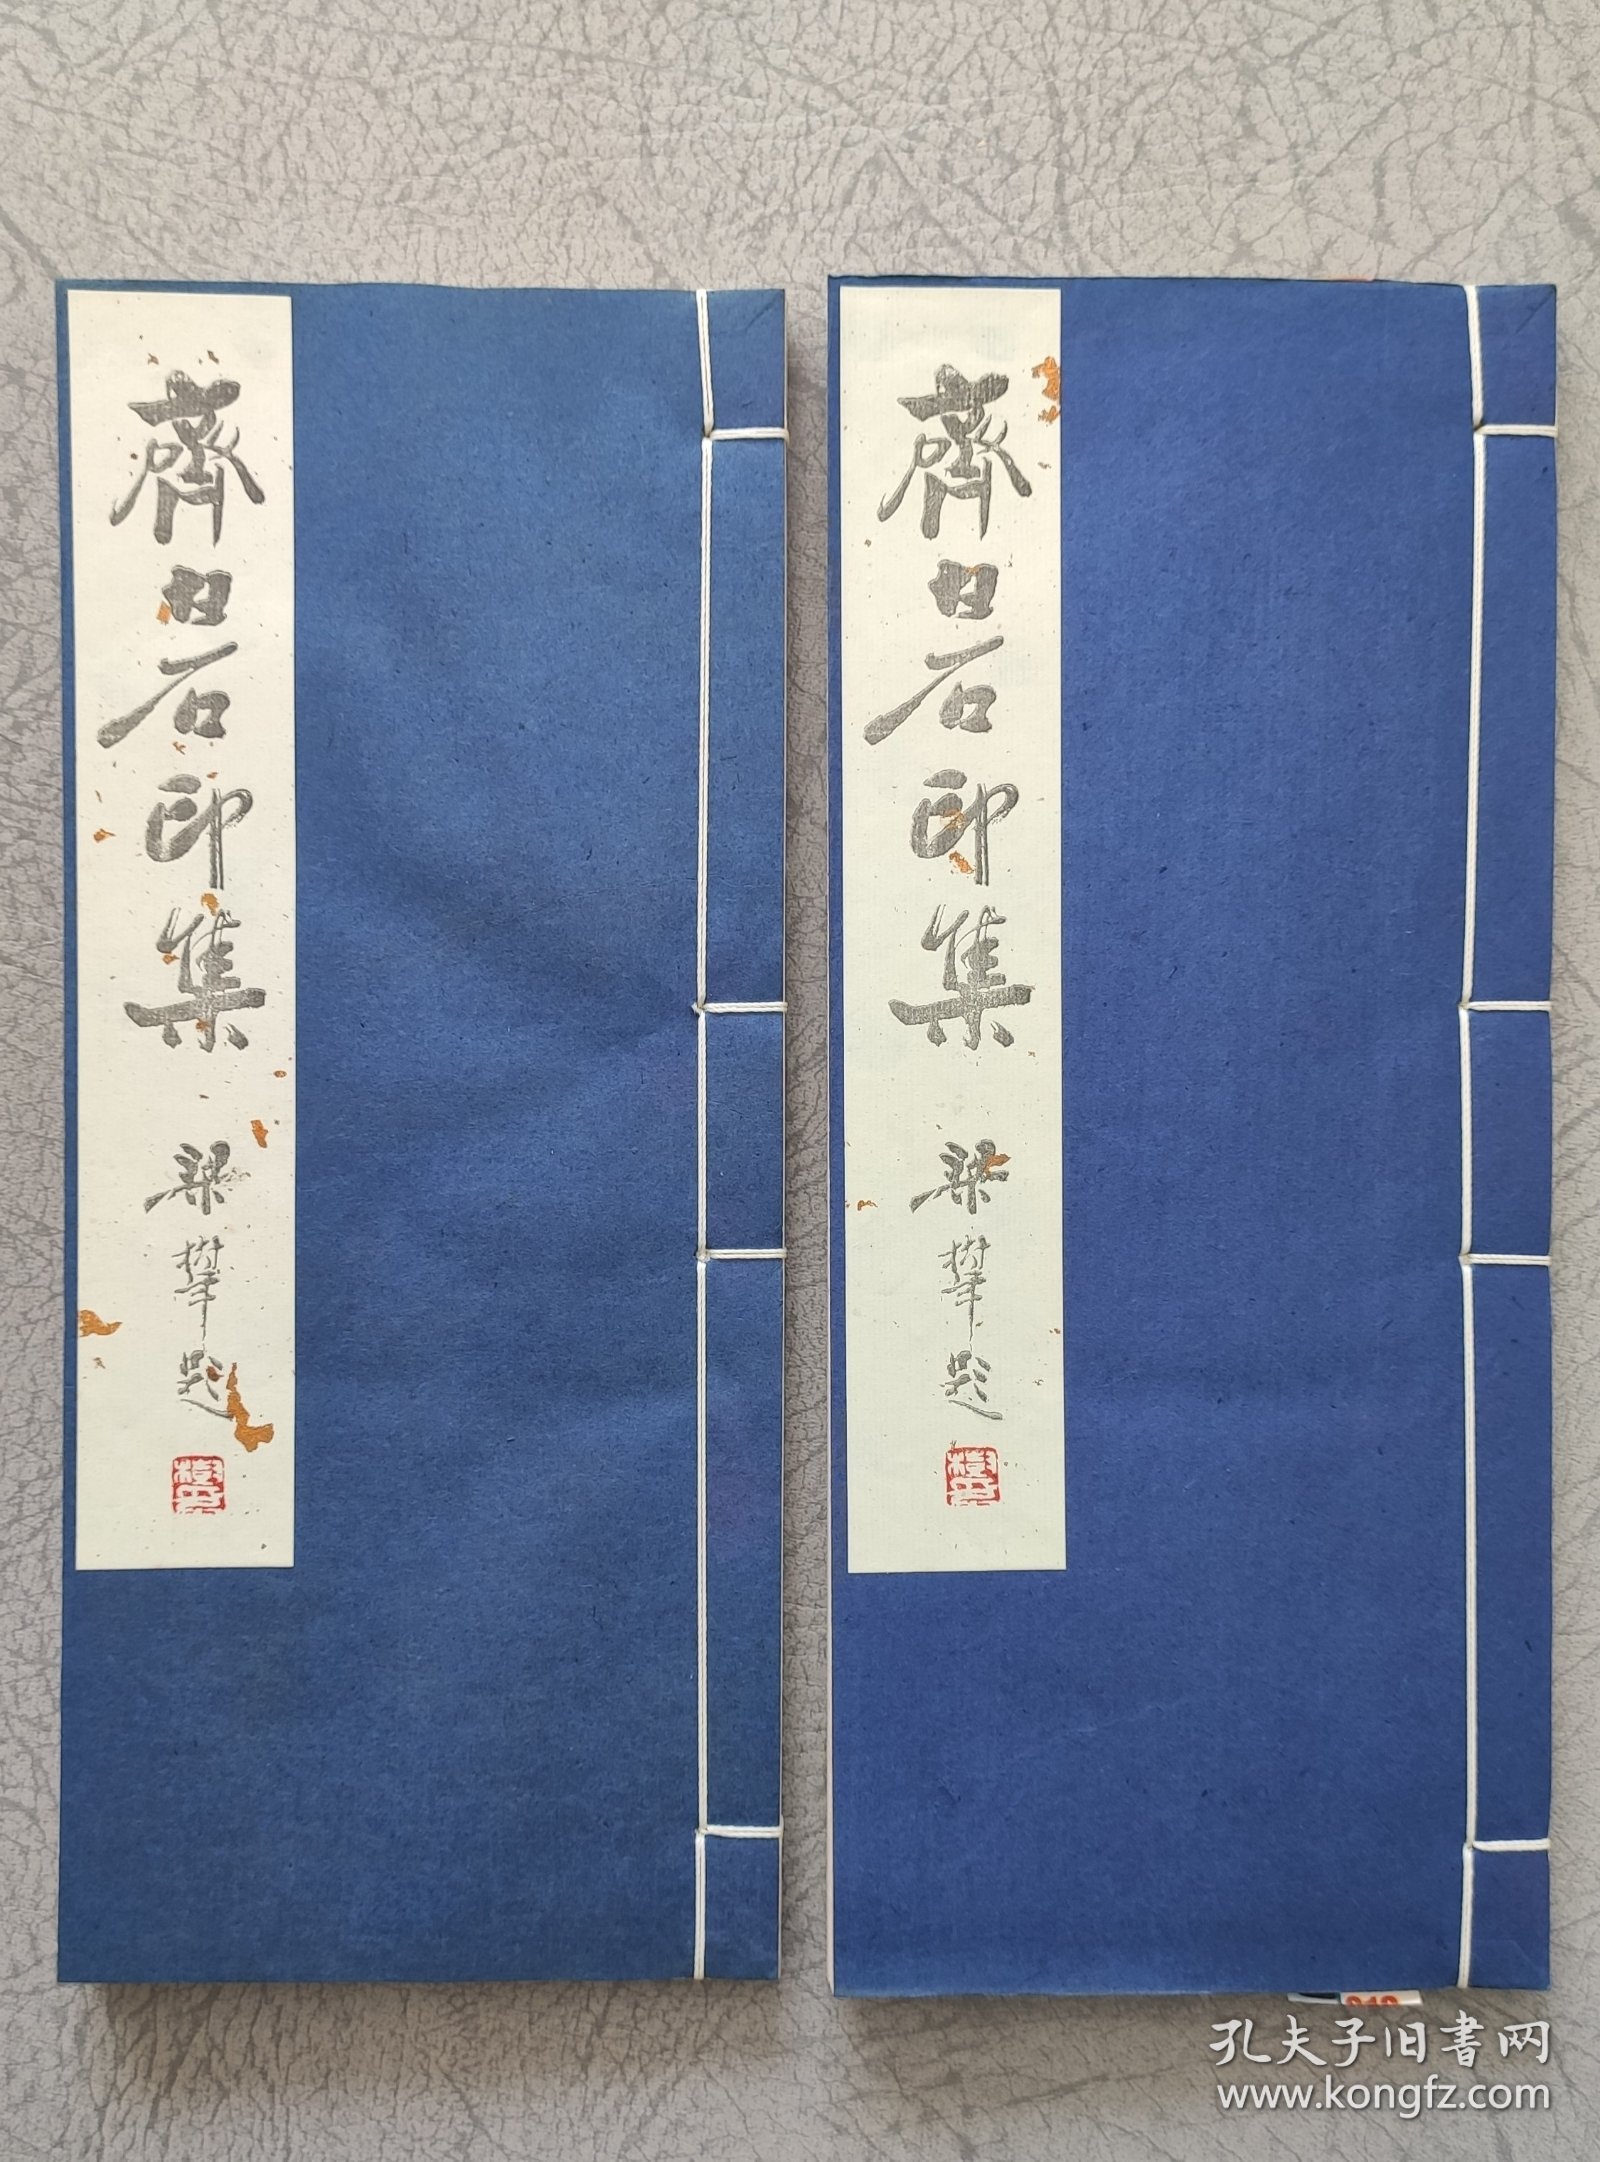 齊白石印集
梁樹年題
樹年
齊白石印集
梁樹年題
樹年
孔夫子旧書网
www.kongfz.com